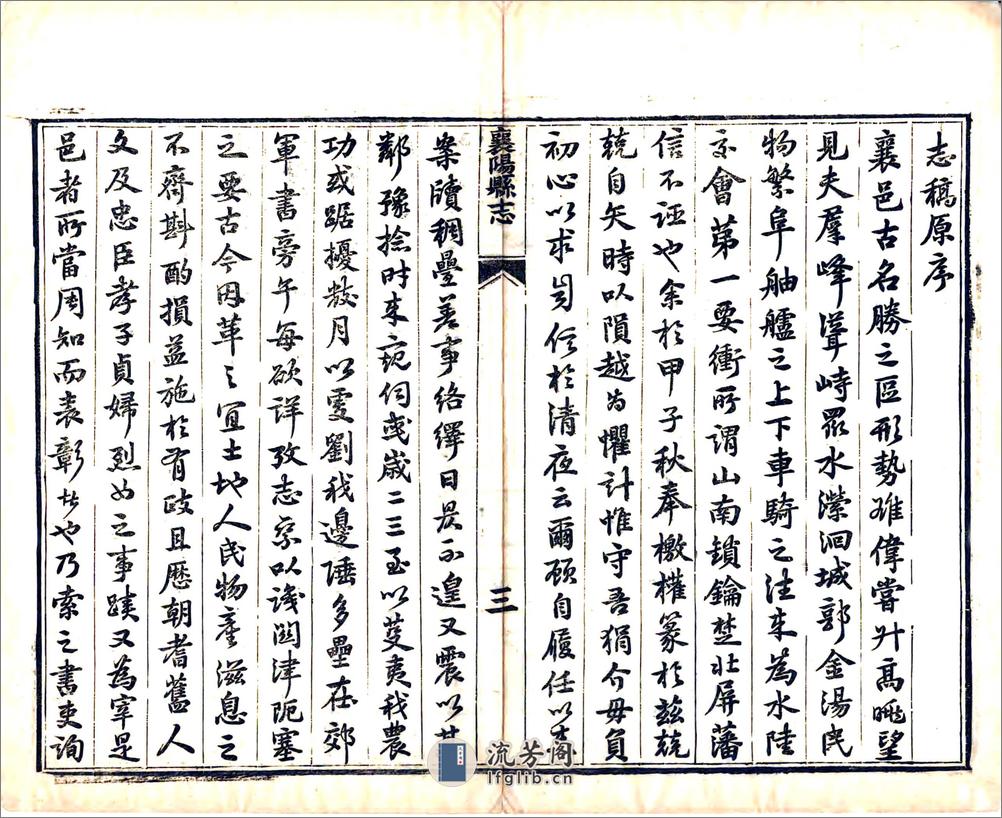 志稿原序
襄邑古名勝之區形勢雄偉嘗升高眺望
見夫羣峰聳峙眾水瀠洄城郭金湯民
物繁阜舳艫之上下車騎之往來為水陸
交會第一要衝所謂山南鎖鑰楚北屏藩
信不誣也余於甲子秋奉檄權篆於茲兢
兢自矢時以隕越為懼計惟守吾狷介毋負
初心以求自信於清夜云爾顧自履任以來
襄陽縣志
三
案牘稠疊差事絡繹日晷不遑又震以其
鄰豫捻時來窺伺或歲二三至以芟夷我農
功或踞擾數月以虔劉我邊陲多壘在郊
軍書旁午每欲詳攷志乘以識關津阨塞
之要古今因革之宜土地人民物產滋息之
不齊斟酌損益施於有政且歷朝耆舊人
文及忠臣孝子貞婦烈女之事蹟又為宰是
邑者所當周知而表彰者也乃索之書吏詢
流芳阁
lfglib.cn